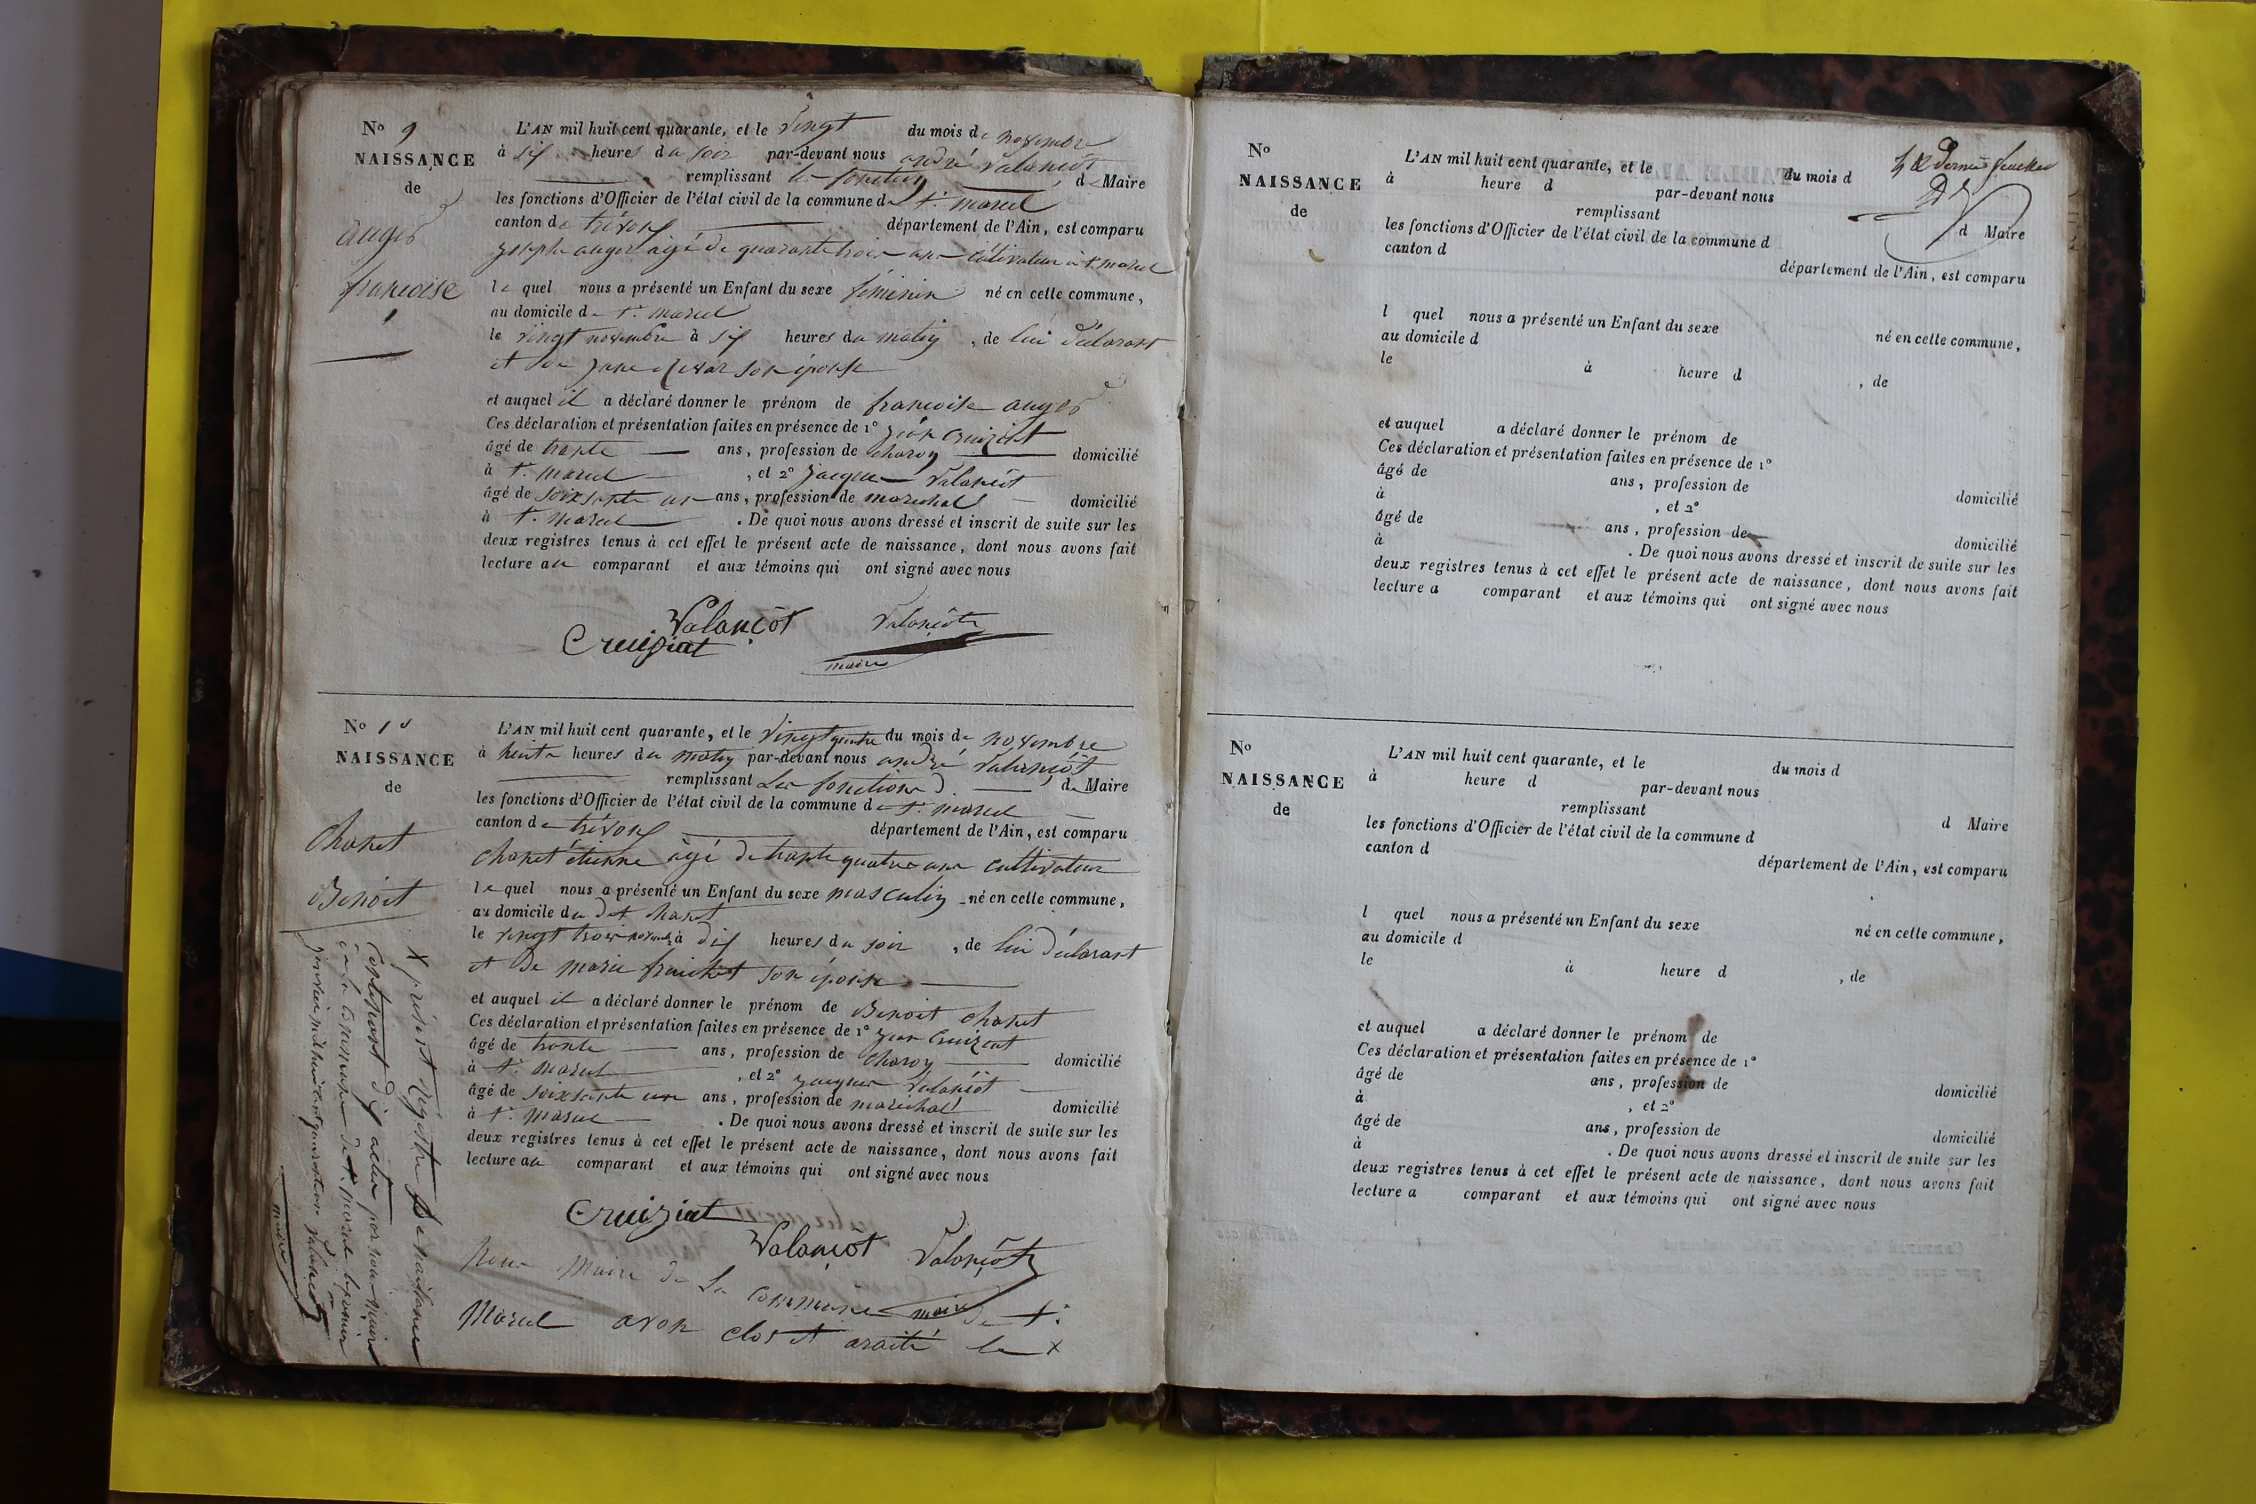 N° 9
NAISSANCE
de
auger
françoise
L'AN mil huit cent quarante, et le vingt du mois de novembre
à six heures du soir par-devant nous andré Valançot
remplissant les fonction d Maire
les fonctions d'Officier de l'état civil de la commune de St. marcel
canton de trévoux département de l'Ain, est comparu
joseph auger agé de quarante trois ans cultivateur à St marcel
lequel nous a présenté un Enfant du sexe féminin né en cette commune,
au domicile de St. marcel
le vingt novembre à six heures du matin, de lui déclarant
et de son épouse
et auquel il a déclaré donner le prénom de françoise auger
Ces déclaration et présentation faites en présence de 1° jean Cruiziat
âgé de trente ans, profession de charon domicilié
à St. marcel, et 2° jacques Valançot
âgé de soixsante un ans, profession de marechal domicilié
à St. marcel. De quoi nous avons dressé et inscrit de suite sur les
deux registres tenus à cet effet le présent acte de naissance, dont nous avons fait
lecture au comparant et aux témoins qui ont signé avec nous
Valançot Valançot
Cruiziat maire
N° 10
NAISSANCE
de
Chanet
Benoit
L'AN mil huit cent quarante, et le vingt quatre du mois de novembre
à heuit heures du matin par-devant nous andré Valançot
remplissant Les fonctions d de Maire
les fonctions d'Officier de l'état civil de la commune de St. marcel
canton de trévoux département de l'Ain, est comparu
Chanet étienne agé de trente quatre ans cultivateur
lequel nous a présenté un Enfant du sexe masculin né en cette commune,
au domicile du dit chanet
le vingt trois novembre à dix heures du soir, de lui déclarant
et de marie son épouse
et auquel il a déclaré donner le prénom de Benoit Chanet
Ces déclaration et présentation faites en présence de 1° jean Cruiziat
âgé de trente ans, profession de charon domicilié
à St. marcel, et 2° jacques Valançot
âgé de soixsante un ans, profession de maréchal domicilié
à St. marcel. De quoi nous avons dressé et inscrit de suite sur les
deux registres tenus à cet effet le présent acte de naissance, dont nous avons fait
lecture au comparant et aux témoins qui ont signé avec nous
Cruiziat
Valançot Valançot
maire
Nous Maire de La Commune de St.
Marcel avon clos et araité le x
x présent régistre de naissance
Contenant dix actes par nous maire
de la Commune de St. marcel le premier
janvier mil huit cent quarante un Valançot
maire
N°
NAISSANCE
de
L'AN mil huit cent quarante, et le du mois d
à heure d par-devant nous
remplissant d Maire
les fonctions d'Officier de l'état civil de la commune d
canton d département de l'Ain, est comparu
l quel nous a présenté un Enfant du sexe né en cette commune,
au domicile d
le à heure d , de
et auquel a déclaré donner le prénom de
Ces déclaration et présentation faites en présence de 1°
âgé de ans, profession de domicilié
à , et 2°
âgé de ans, profession de domicilié
à . De quoi nous avons dressé et inscrit de suite sur les
deux registres tenus à cet effet le présent acte de naissance, dont nous avons fait
lecture a comparant et aux témoins qui ont signé avec nous
N°
NAISSANCE
de
L'AN mil huit cent quarante, et le du mois d
à heure d par-devant nous
remplissant d Maire
les fonctions d'Officier de l'état civil de la commune d
canton d département de l'Ain, est comparu
l quel nous a présenté un Enfant du sexe né en cette commune,
au domicile d
le à heure d , de
et auquel a déclaré donner le prénom de
Ces déclaration et présentation faites en présence de 1°
âgé de ans, profession de domicilié
à , et 2°
âgé de ans, profession de domicilié
à . De quoi nous avons dressé et inscrit de suite sur les
deux registres tenus à cet effet le présent acte de naissance, dont nous avons fait
lecture a comparant et aux témoins qui ont signé avec nous